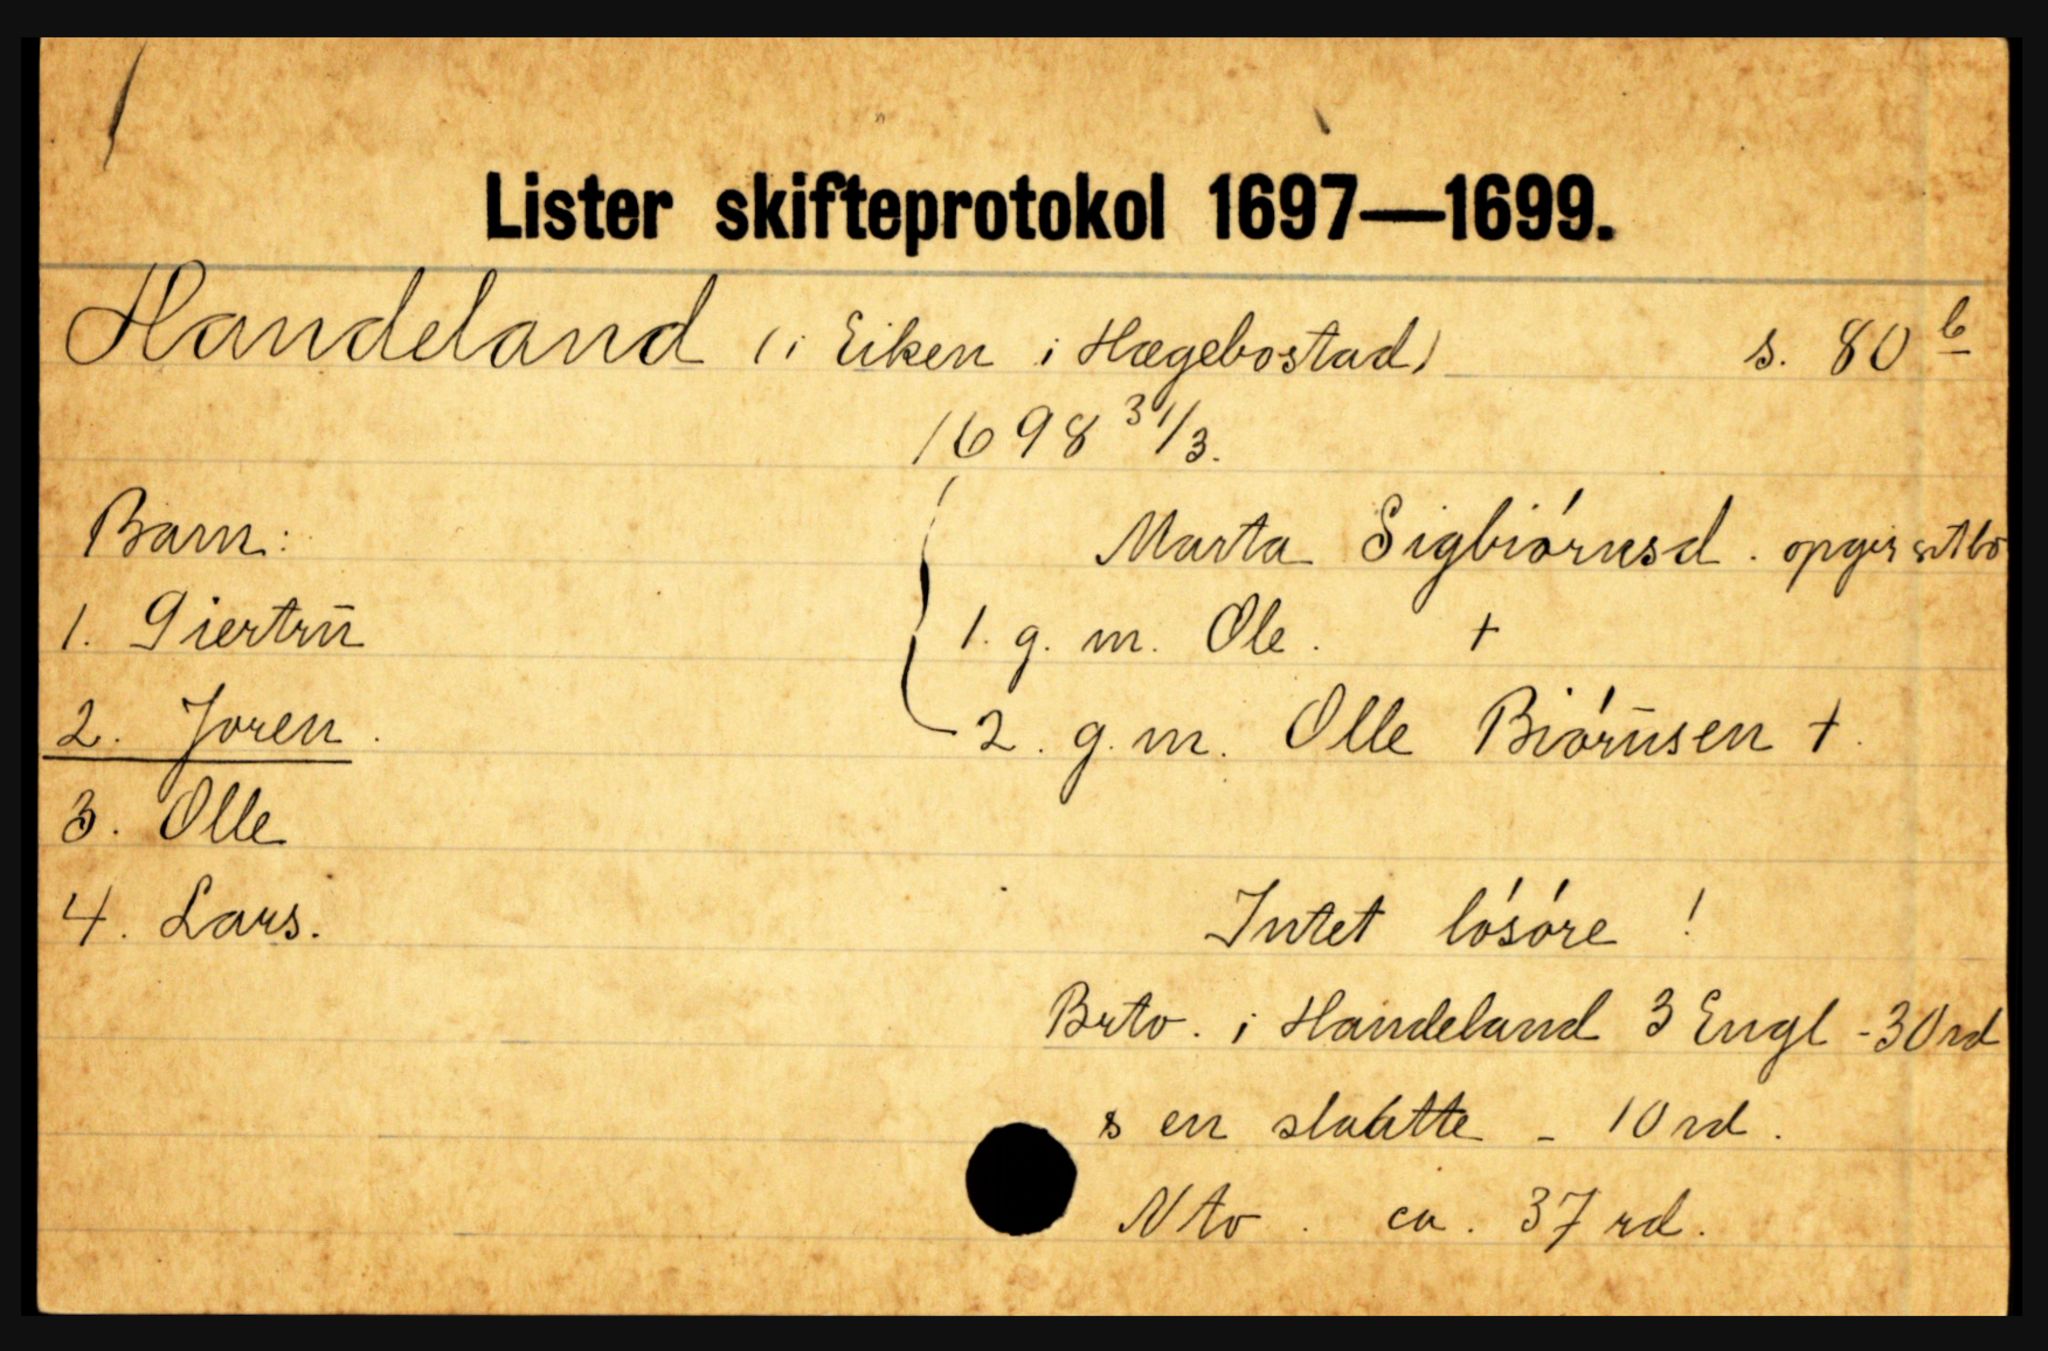 Lister skifteprotokol 1697—1699.
Handeland (i Eiken i Hægebostad) s. 80 b
1698 31/3.
Barn:
Marta Sigbiórnsd. opgir sit bo
1. Giertrū
1. g. m. Ole. +
2. Joren.
2. g. m. Olle Biórn̄sen +.
3. Olle
4. Lars.
Intet lósóre !
Brto. i Handeland 3 Engl - 30 rd
s en slaatte - 10 rd.
Nto. ca. 37 rd.